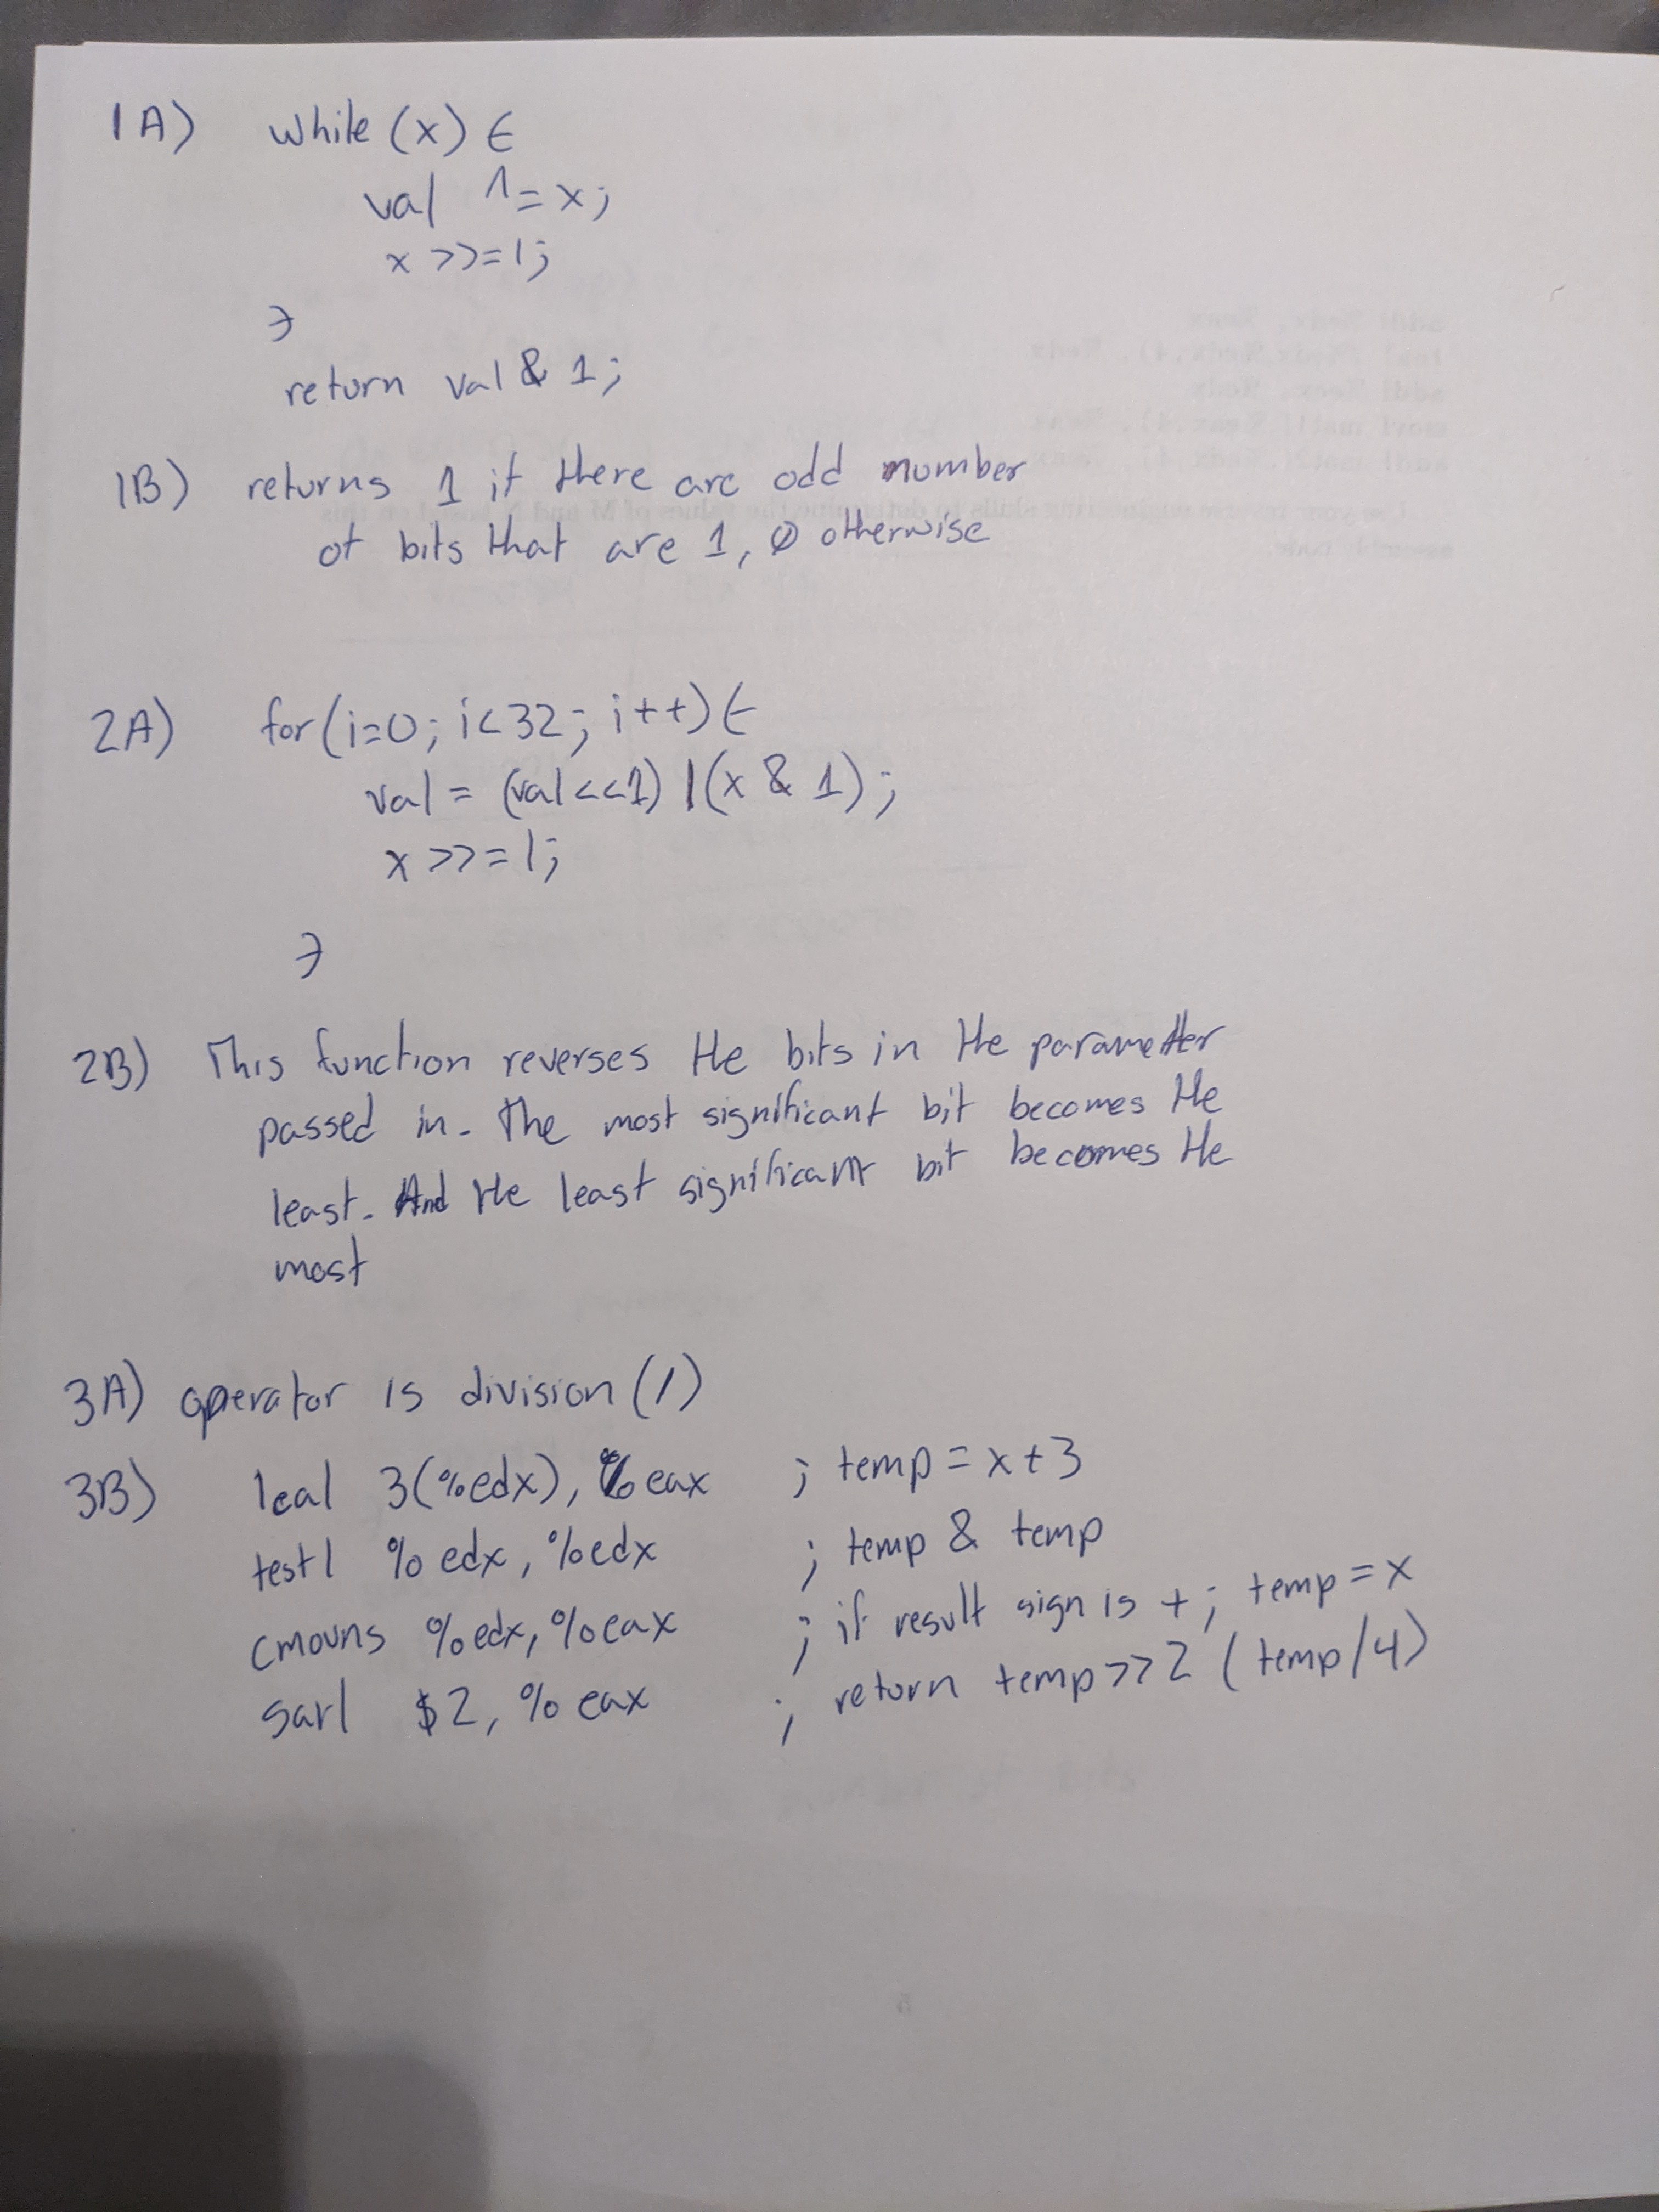 1A) while (x) {
val ^= x;
x >>= 1;
}
return val & 1;
1B) returns 1 if there are odd number
of bits that are 1, 0 otherwise
2A) for(i=0; i<32; i++) {
val = (val<<1) | (x & 1);
x >>= 1;
}
2B) This function reverses the bits in the parameter
passed in. The most significant bit becomes the
least. And the least significant bit becomes the
most
3A) operator is division (/)
3B) leal 3(%edx), %eax ; temp = x+3
testl %edx, %edx ; temp & temp
cmovns %edx, %eax ; if result sign is +; temp = x
sarl $2, %eax ; return temp >> 2 (temp/4)